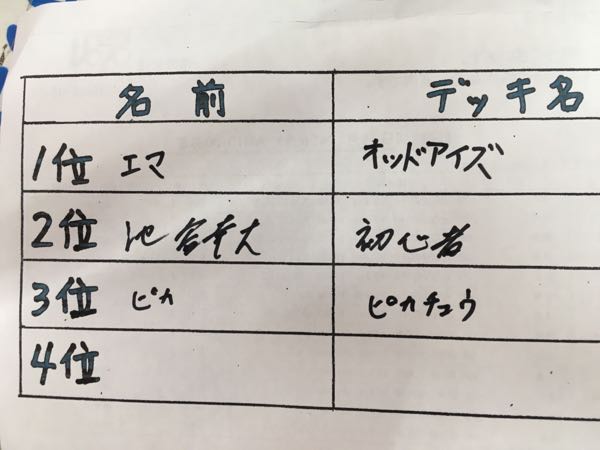 名前 デッキ名
1位 エマ オッドアイズ
2位 池谷幸大 初心者
3位 ピカ ピカチュウ
4位